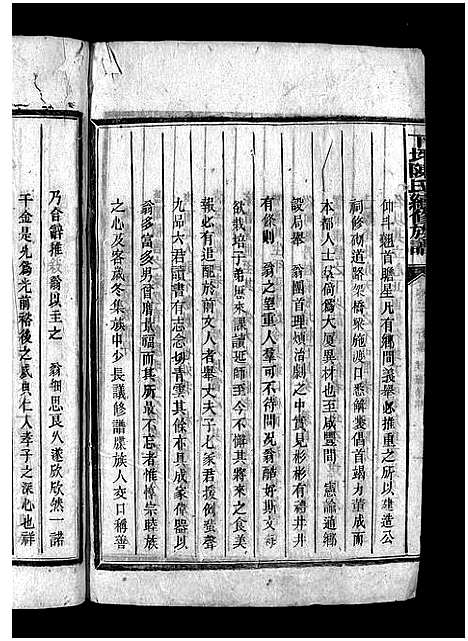 下坪陳氏續修族譜
仰斗翹首瞻星凡有鄉閭義舉必推重之所以建造公
祠修砌道路架橋樑施渡口悉解囊倡首竭力董成而
本都人士莫倚為大廈異材也至咸豐間 憲諭通鄉
設局舉 翁團首理煩治劇之中實見彬彬有禮井井
有條則 翁之望重人羣可不問况翁酷好斯文每
欲栽培子弟思來課讀延師至今不懈其將來之食美
報必有追配於前文人者舉丈夫子七家君援例蜚聲
九品六君讀書有志念切青雲其餘克成家偉器以
翁多富多男晉膺景福而其所最不忘者惟惇宗睦族
之心及客歲冬集族中少長議修譜牒族人交口稱善
乃合辭推 翁以主之 翁細思良久遂欣欣然一諾
千金是先為光前裕後之盛真仁人孝子之深心也詳